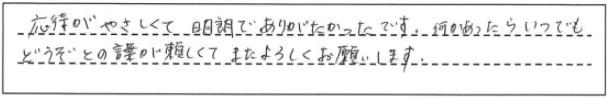 応待がやさしくて 明調でありがたかったです。何かあったらいつでも
どうぞとの言葉が頼しくて またよろしくお願いします。